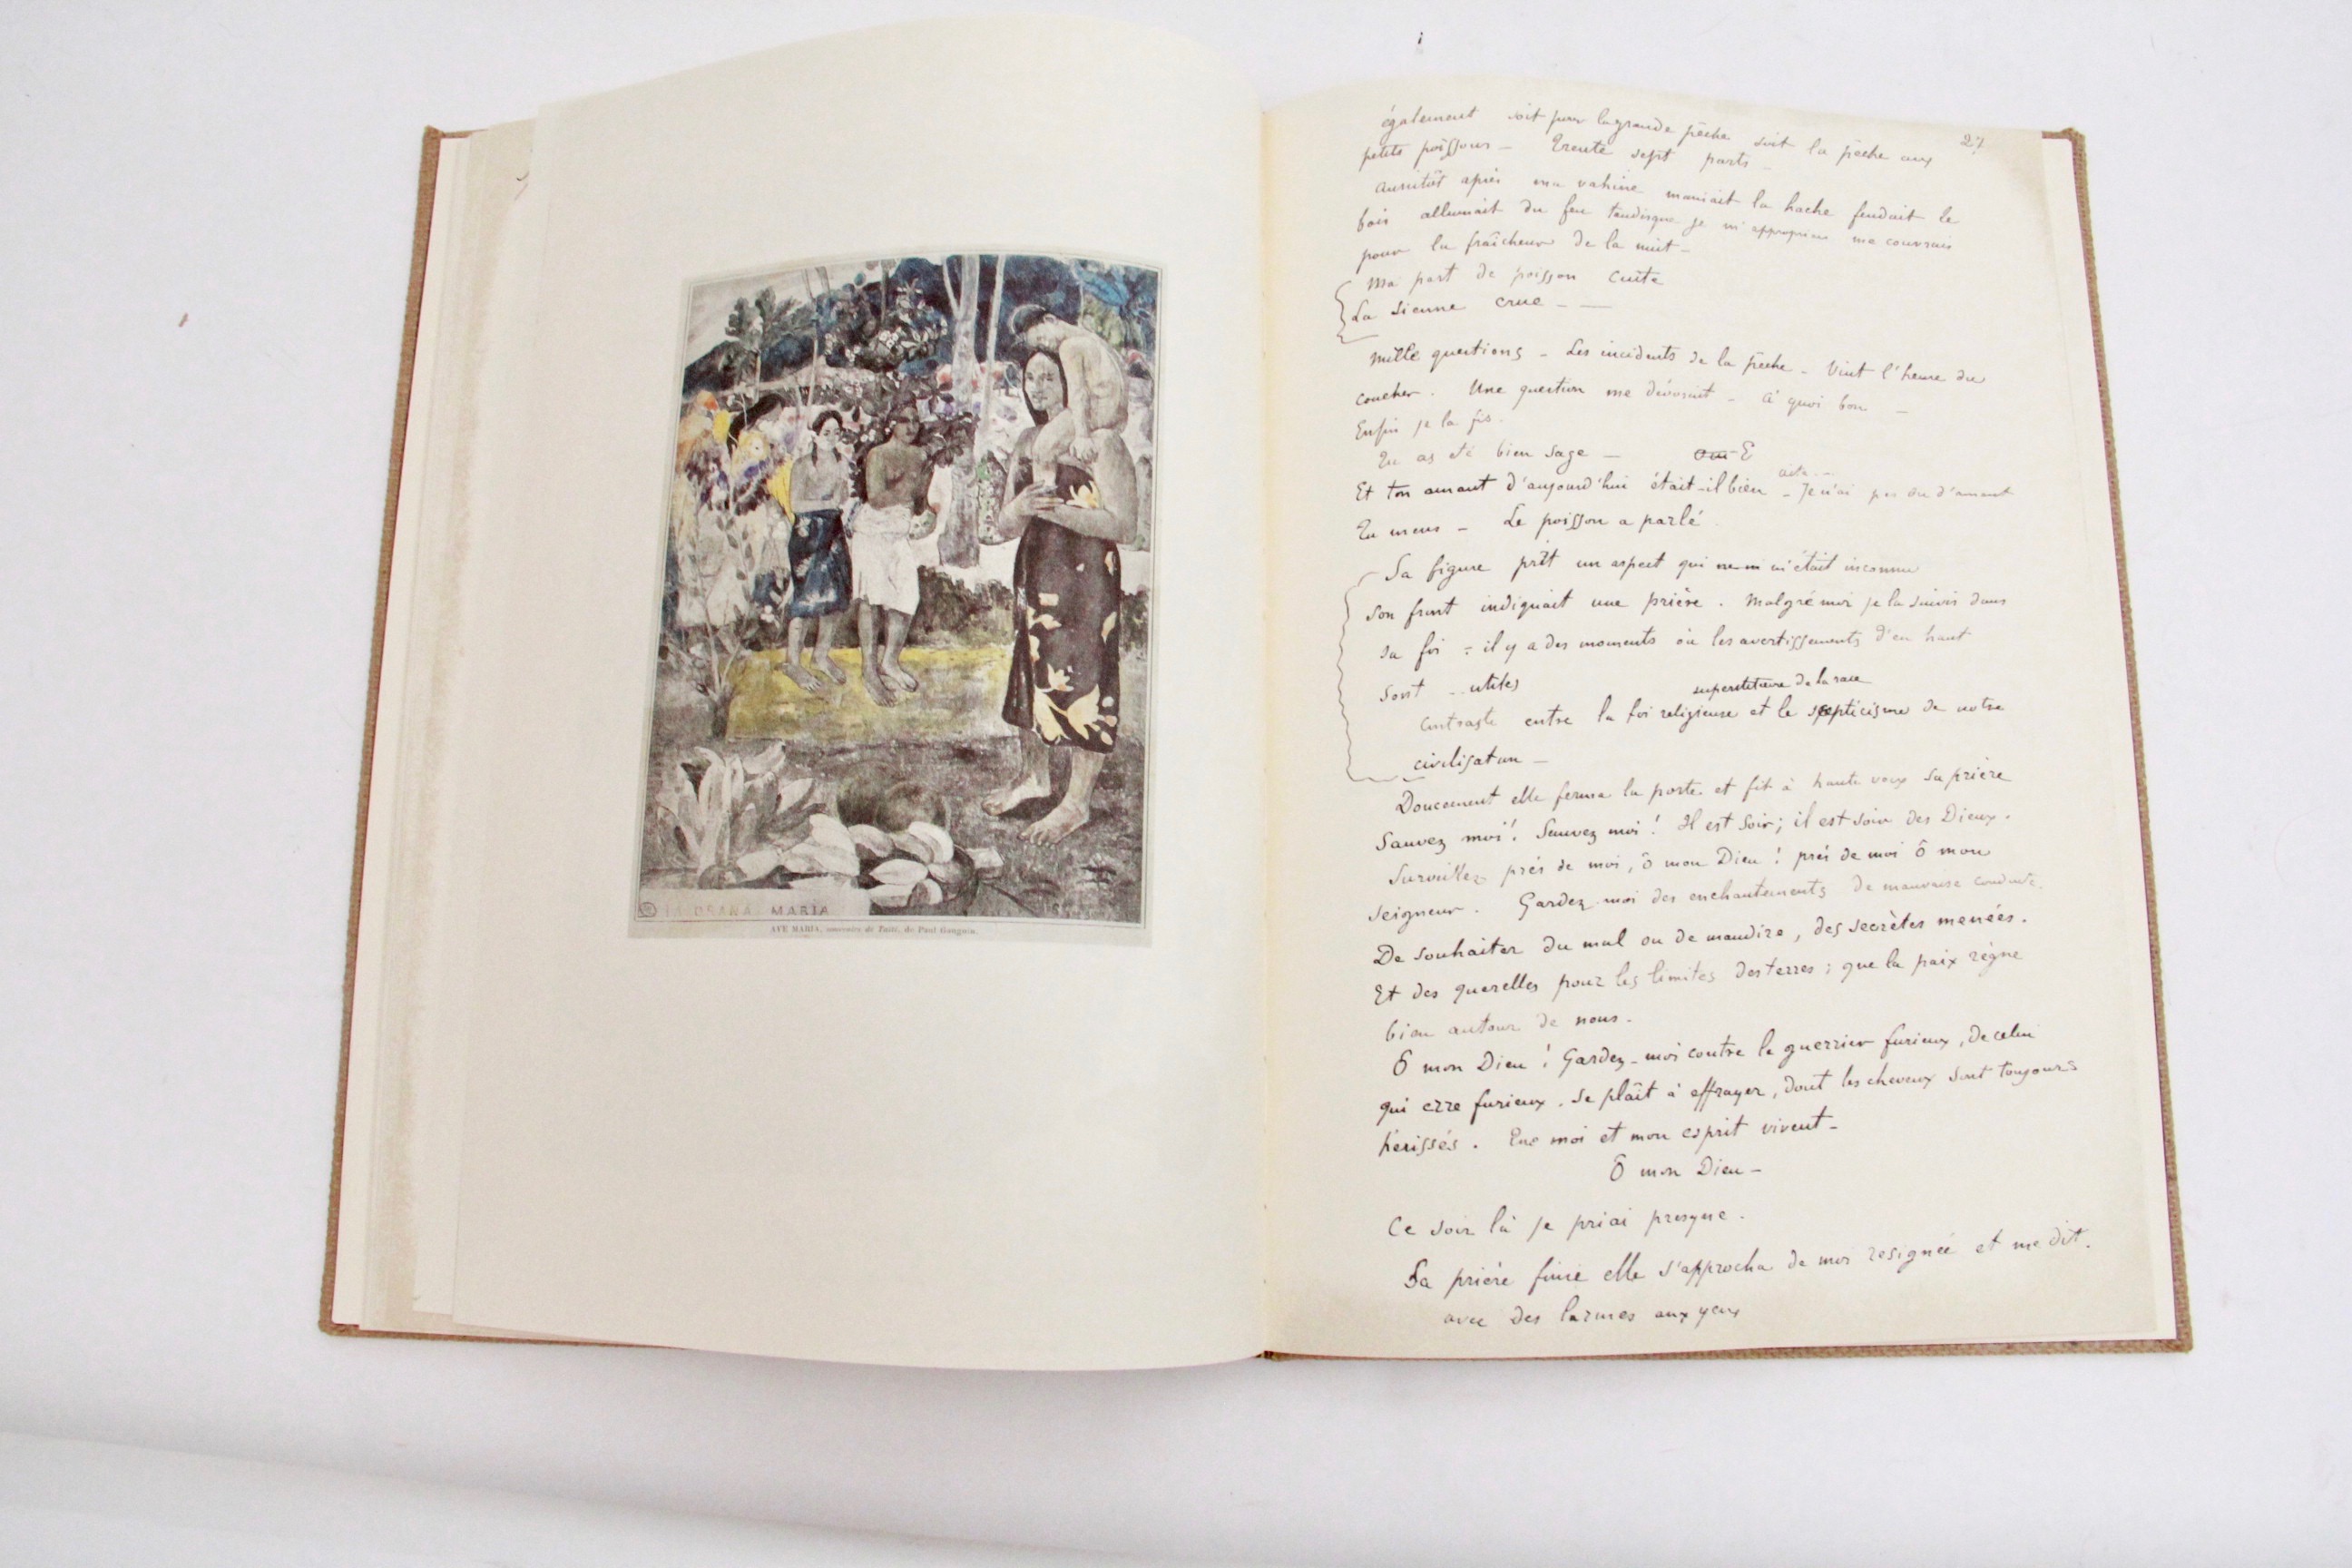 IA ORANA MARIA
AVE MARIA, souvenirs de Taïti, de Paul Gauguin.
27
également soit pour la grande pêche soit la pêche aux
petits poissons – Trente sept parts –
Aussitôt après ma vahine maniait la hache fendait le
bois allumait du feu tandisque je m'appropriais me couvrais
pour la fraîcheur de la nuit –
Ma part de poisson cuite
La sienne crue – —
Mille questions – Les incidents de la pêche – Vint l'heure du
coucher. Une question me dévorait – à quoi bon –
Enfin je la fis.
Tu as été bien sage — E
Et ton amant d'aujourd'hui était-il bien – Je n'ai pas eu d'amant
Tu mens – Le poisson a parlé.
Sa figure prît un aspect qui ne m m'était inconnu
son front indiquait une prière. Malgré moi je la suivis dans
sa foi : il y a des moments où les avertissements d'en haut
sont .. utiles
superstitieuse de la race
Contraste entre la foi religieuse et le scepticisme de notre
civilisation –
Doucement elle ferma la porte. et fit à haute voix sa prière
Sauvez moi! Sauvez moi! Il est soir; il est soir des Dieux.
Surveillez près de moi, ô mon Dieu! près de moi ô mon
seigneur. Gardez moi des enchantements de mauvaise conduite.
De souhaiter du mal ou de maudire, des secrètes menées.
Et des querelles pour les limites des terres; que la paix règne
bien autour de nous.
Ô mon Dieu! Gardez-moi contre le guerrier furieux, de celui
qui erre furieux. se plaît à effrayer, dont les cheveux sont toujours
hérissés. Que moi et mon esprit vivent –
Ô mon Dieu –
Ce soir là je priai presque.
Sa prière finie elle s'approcha de moi resignée et me dit.
avec des larmes aux yeux